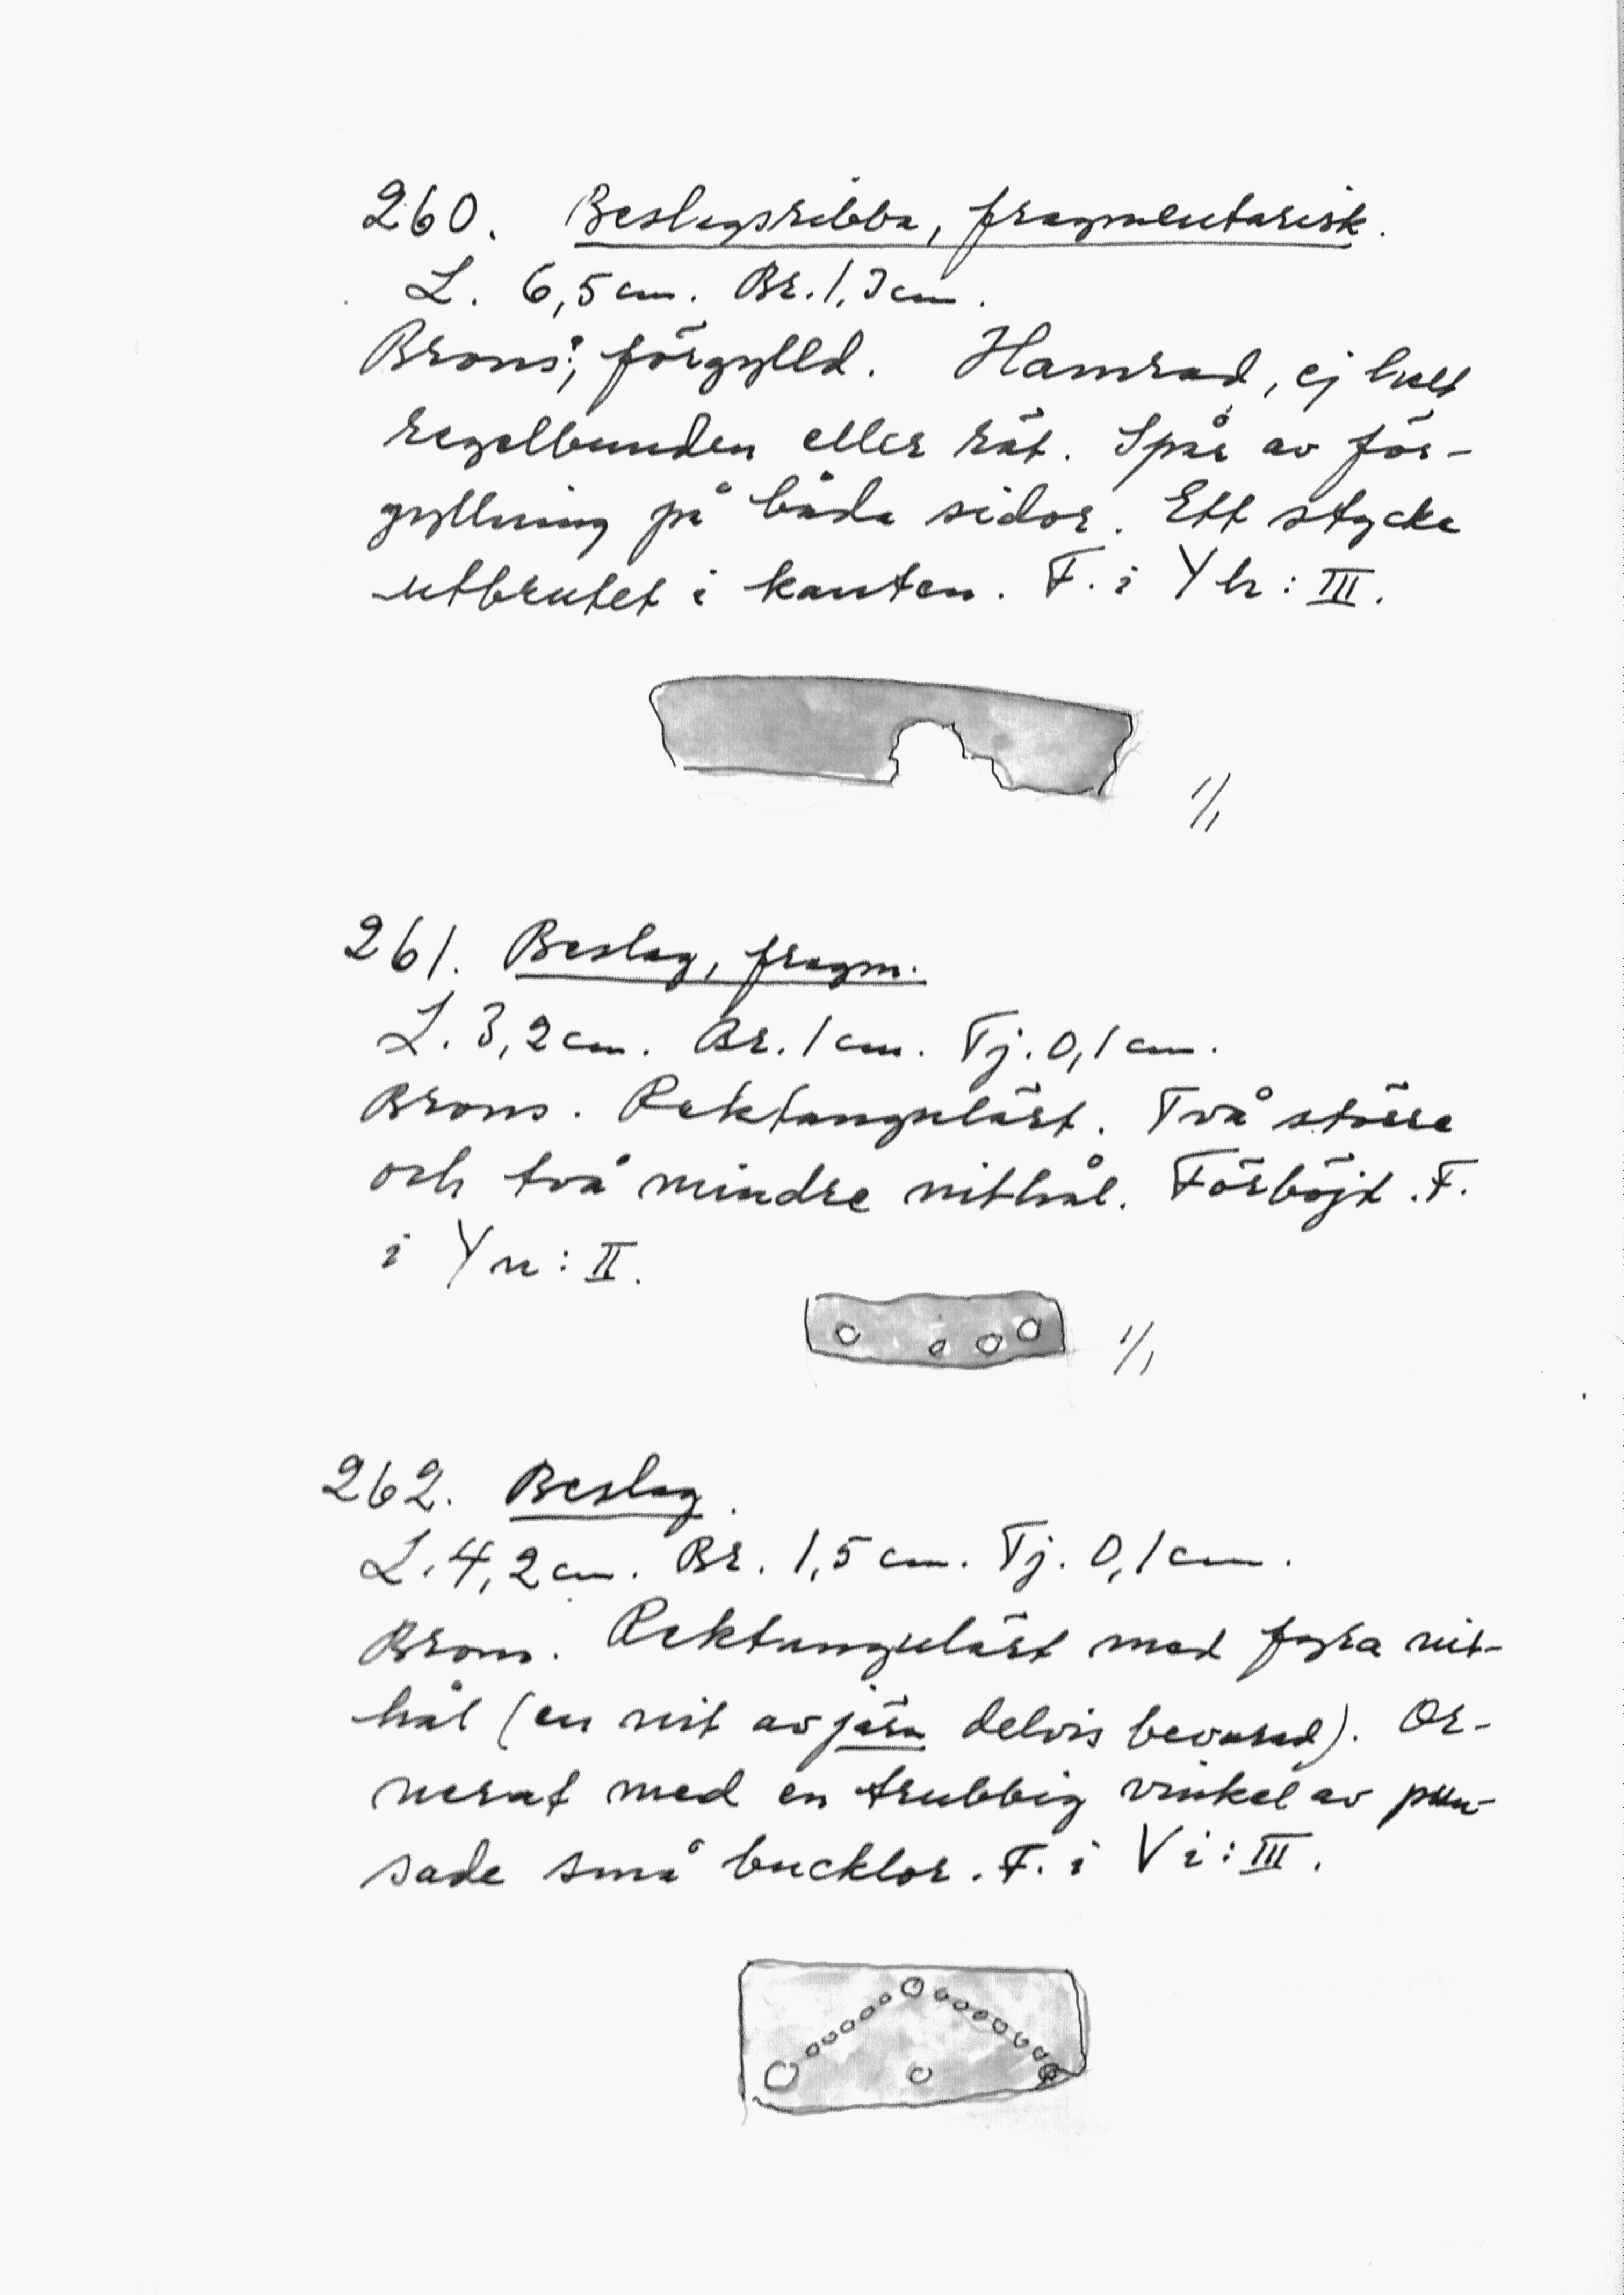 260. Beslagsribba, fragmentarisk.
L. 6,5 cm. Br. 1,3 cm.
Brons; förgylld. Hamrad, ej helt
regelbunden eller rät. Spår av för-
gyllning på båda sidor. Ett stycke
utbrutet i kanten. F. i Yh: III.
1/1
261. Beslag, fragm.
L. 3,2 cm. Br. 1 cm. Tj. 0,1 cm.
Brons. Rektangulärt. Två större
och två mindre nithål. Förböjt. F.
i Yn: II.
1/1
262. Beslag.
L. 4,2 cm. Br. 1,5 cm. Tj. 0,1 cm.
Brons. Rektangulärt med fyra nit-
hål (en nit av järn delvis bevarad). Or-
nerat med en trubbig vinkel av pun-
sade små bucklor. F. i Vi: III.